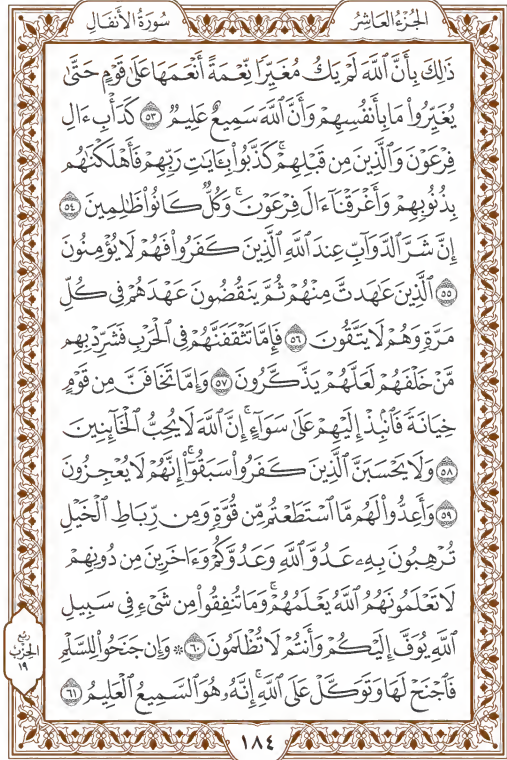 الجُزْءُ العَاشِرُ
سُورَةُ الأَنفَالِ
ذَٰلِكَ بِأَنَّ ٱللَّهَ لَمْ يَكُ مُغَيِّرًا نِّعْمَةً أَنْعَمَهَا عَلَىٰ قَوْمٍ حَتَّىٰ
يُغَيِّرُوا۟ مَا بِأَنفُسِهِمْ وَأَنَّ ٱللَّهَ سَمِيعٌ عَلِيمٌ ٥٣ كَدَأْبِ ءَالِ
فِرْعَوْنَ وَٱلَّذِينَ مِن قَبْلِهِمْ ۚ كَذَّبُوا۟ بِـَٔايَٰتِ رَبِّهِمْ فَأَهْلَكْنَٰهُم
بِذُنُوبِهِمْ وَأَغْرَقْنَآ ءَالَ فِرْعَوْنَ ۚ وَكُلٌّ كَانُوا۟ ظَٰلِمِينَ ٥٤
إِنَّ شَرَّ ٱلدَّوَآبِّ عِندَ ٱللَّهِ ٱلَّذِينَ كَفَرُوا۟ فَهُمْ لَا يُؤْمِنُونَ
٥٥ ٱلَّذِينَ عَٰهَدتَّ مِنْهُمْ ثُمَّ يَنقُضُونَ عَهْدَهُمْ فِى كُلِّ
مَرَّةٍ وَهُمْ لَا يَتَّقُونَ ٥٦ فَإِمَّا تَثْقَفَنَّهُمْ فِى ٱلْحَرْبِ فَشَرِّدْ بِهِم
مَّنْ خَلْفَهُمْ لَعَلَّهُمْ يَذَّكَّرُونَ ٥٧ وَإِمَّا تَخَافَنَّ مِن قَوْمٍ
خِيَانَةً فَٱنۢبِذْ إِلَيْهِمْ عَلَىٰ سَوَآءٍ ۚ إِنَّ ٱللَّهَ لَا يُحِبُّ ٱلْخَآئِنِينَ
٥٨ وَلَا يَحْسَبَنَّ ٱلَّذِينَ كَفَرُوا۟ سَبَقُوٓا۟ ۚ إِنَّهُمْ لَا يُعْجِزُونَ
٥٩ وَأَعِدُّوا۟ لَهُم مَّا ٱسْتَطَعْتُم مِّن قُوَّةٍ وَمِن رِّبَاطِ ٱلْخَيْلِ
تُرْهِبُونَ بِهِۦ عَدُوَّ ٱللَّهِ وَعَدُوَّكُمْ وَءَاخَرِينَ مِن دُونِهِمْ
لَا تَعْلَمُونَهُمُ ٱللَّهُ يَعْلَمُهُمْ ۚ وَمَا تُنفِقُوا۟ مِن شَىْءٍ فِى سَبِيلِ
ٱللَّهِ يُوَفَّ إِلَيْكُمْ وَأَنتُمْ لَا تُظْلَمُونَ ٦٠ ۞ وَإِن جَنَحُوا۟ لِلسَّلْمِ
فَٱجْنَحْ لَهَا وَتَوَكَّلْ عَلَى ٱللَّهِ ۚ إِنَّهُۥ هُوَ ٱلسَّمِيعُ ٱلْعَلِيمُ ٦١
ربع
الحزب
١٩
١٨٤